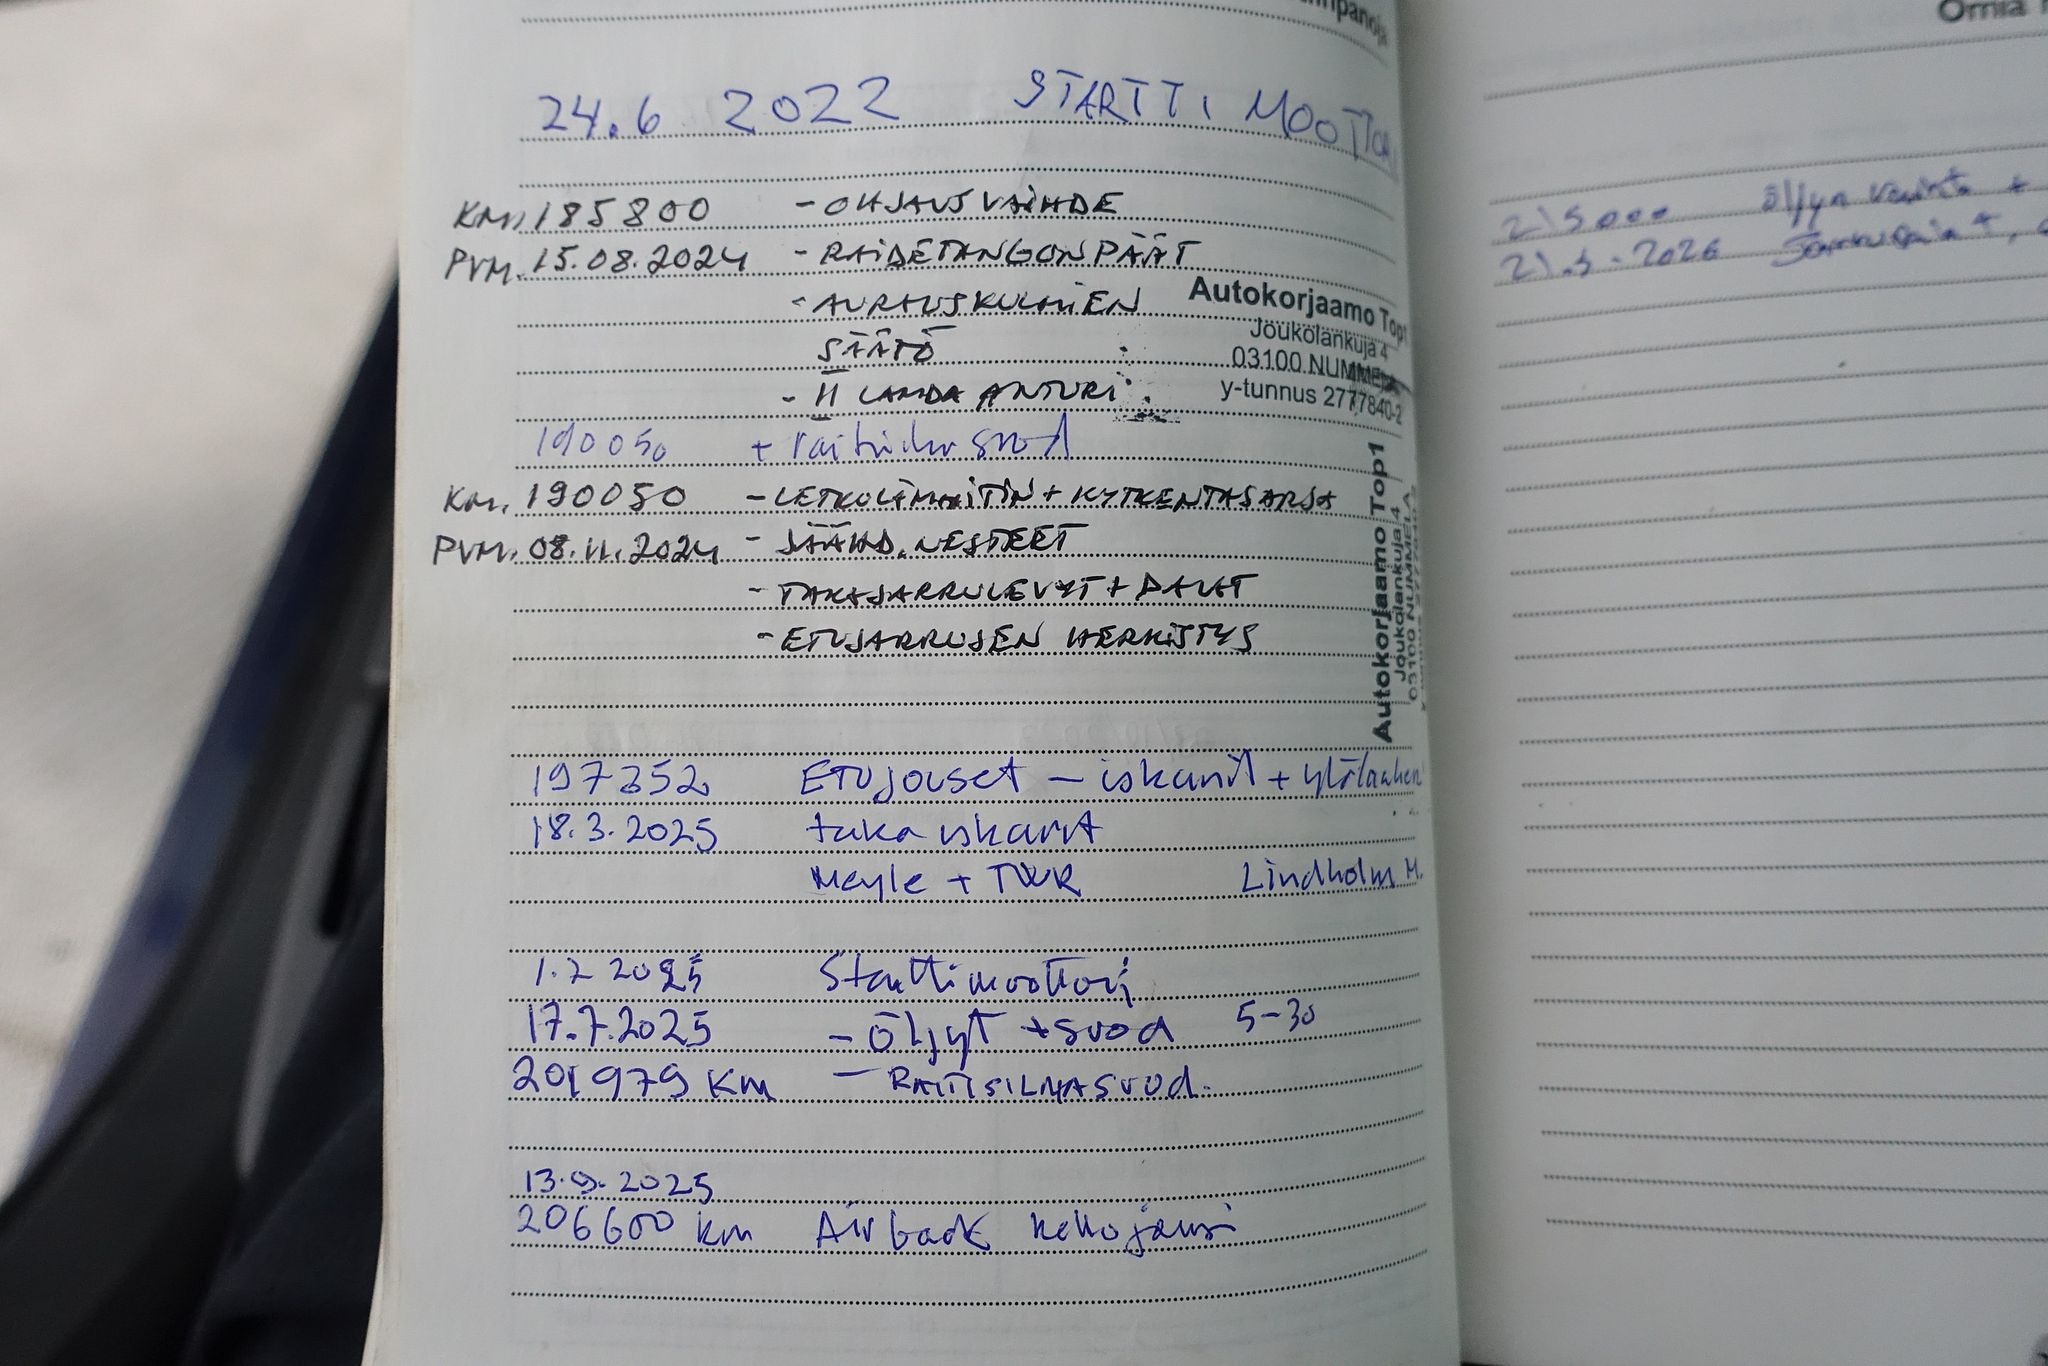 24.6 2022 STARTTI MOOTTORI
KM. 185800 - OHJAUSVAIHDE
PVM. 15.08.2024 - RAIDETANGONPÄÄT
- AURAUSKULMIEN
SÄÄTÖ
- II LAMDA ANTURI
Autokorjaamo Top1
Joukolankuja 4
03100 NUMMELA
y-tunnus 2777840-2
190050 + raitisilmasuod
KM. 190050 - LETKULIMAITIN + KYTKENTASARJA
PVM. 08.11.2024 - JÄÄHD.NESTEET
- TAKAJARRULEVYT + PALAT
- ETUJARRUJEN HERKISTYS
Autokorjaamo Top1
Joukolankuja 4
03100 NUMMELA
197352 ETUjouset - iskarit + ylälaakeri
18.3.2025 taka iskarit
Meyle + TRW Lindholm M.
1.7 2025 Starttimoottori
17.7.2025 - öljyt + suod 5-30
201979 KM - RAITISILMASUOD.
13.9.2025
206600 km Airback kellojousi
Omia
215000 öljyn vaihto +
21.3.2026